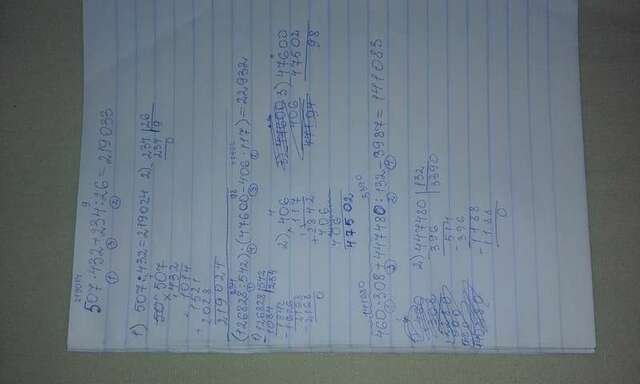 219024 9
507·432+234:26=219033
1 3 2
1) 507·432=219024 2) 234 26
507 234 9
×432 0
1014
1521
2028
219024
234 98 47502
(126828:542):(47600-406·117)=22932
1) 126828 542
1084 234
1842 2) 406 3) 47600
1626 117 47502
2168 2842 98
2168 406
0 406
47502
141080 3390
460·308+447480:132-3987=141083
2) 447480 132
396 3390
514
396
1188
1188
0